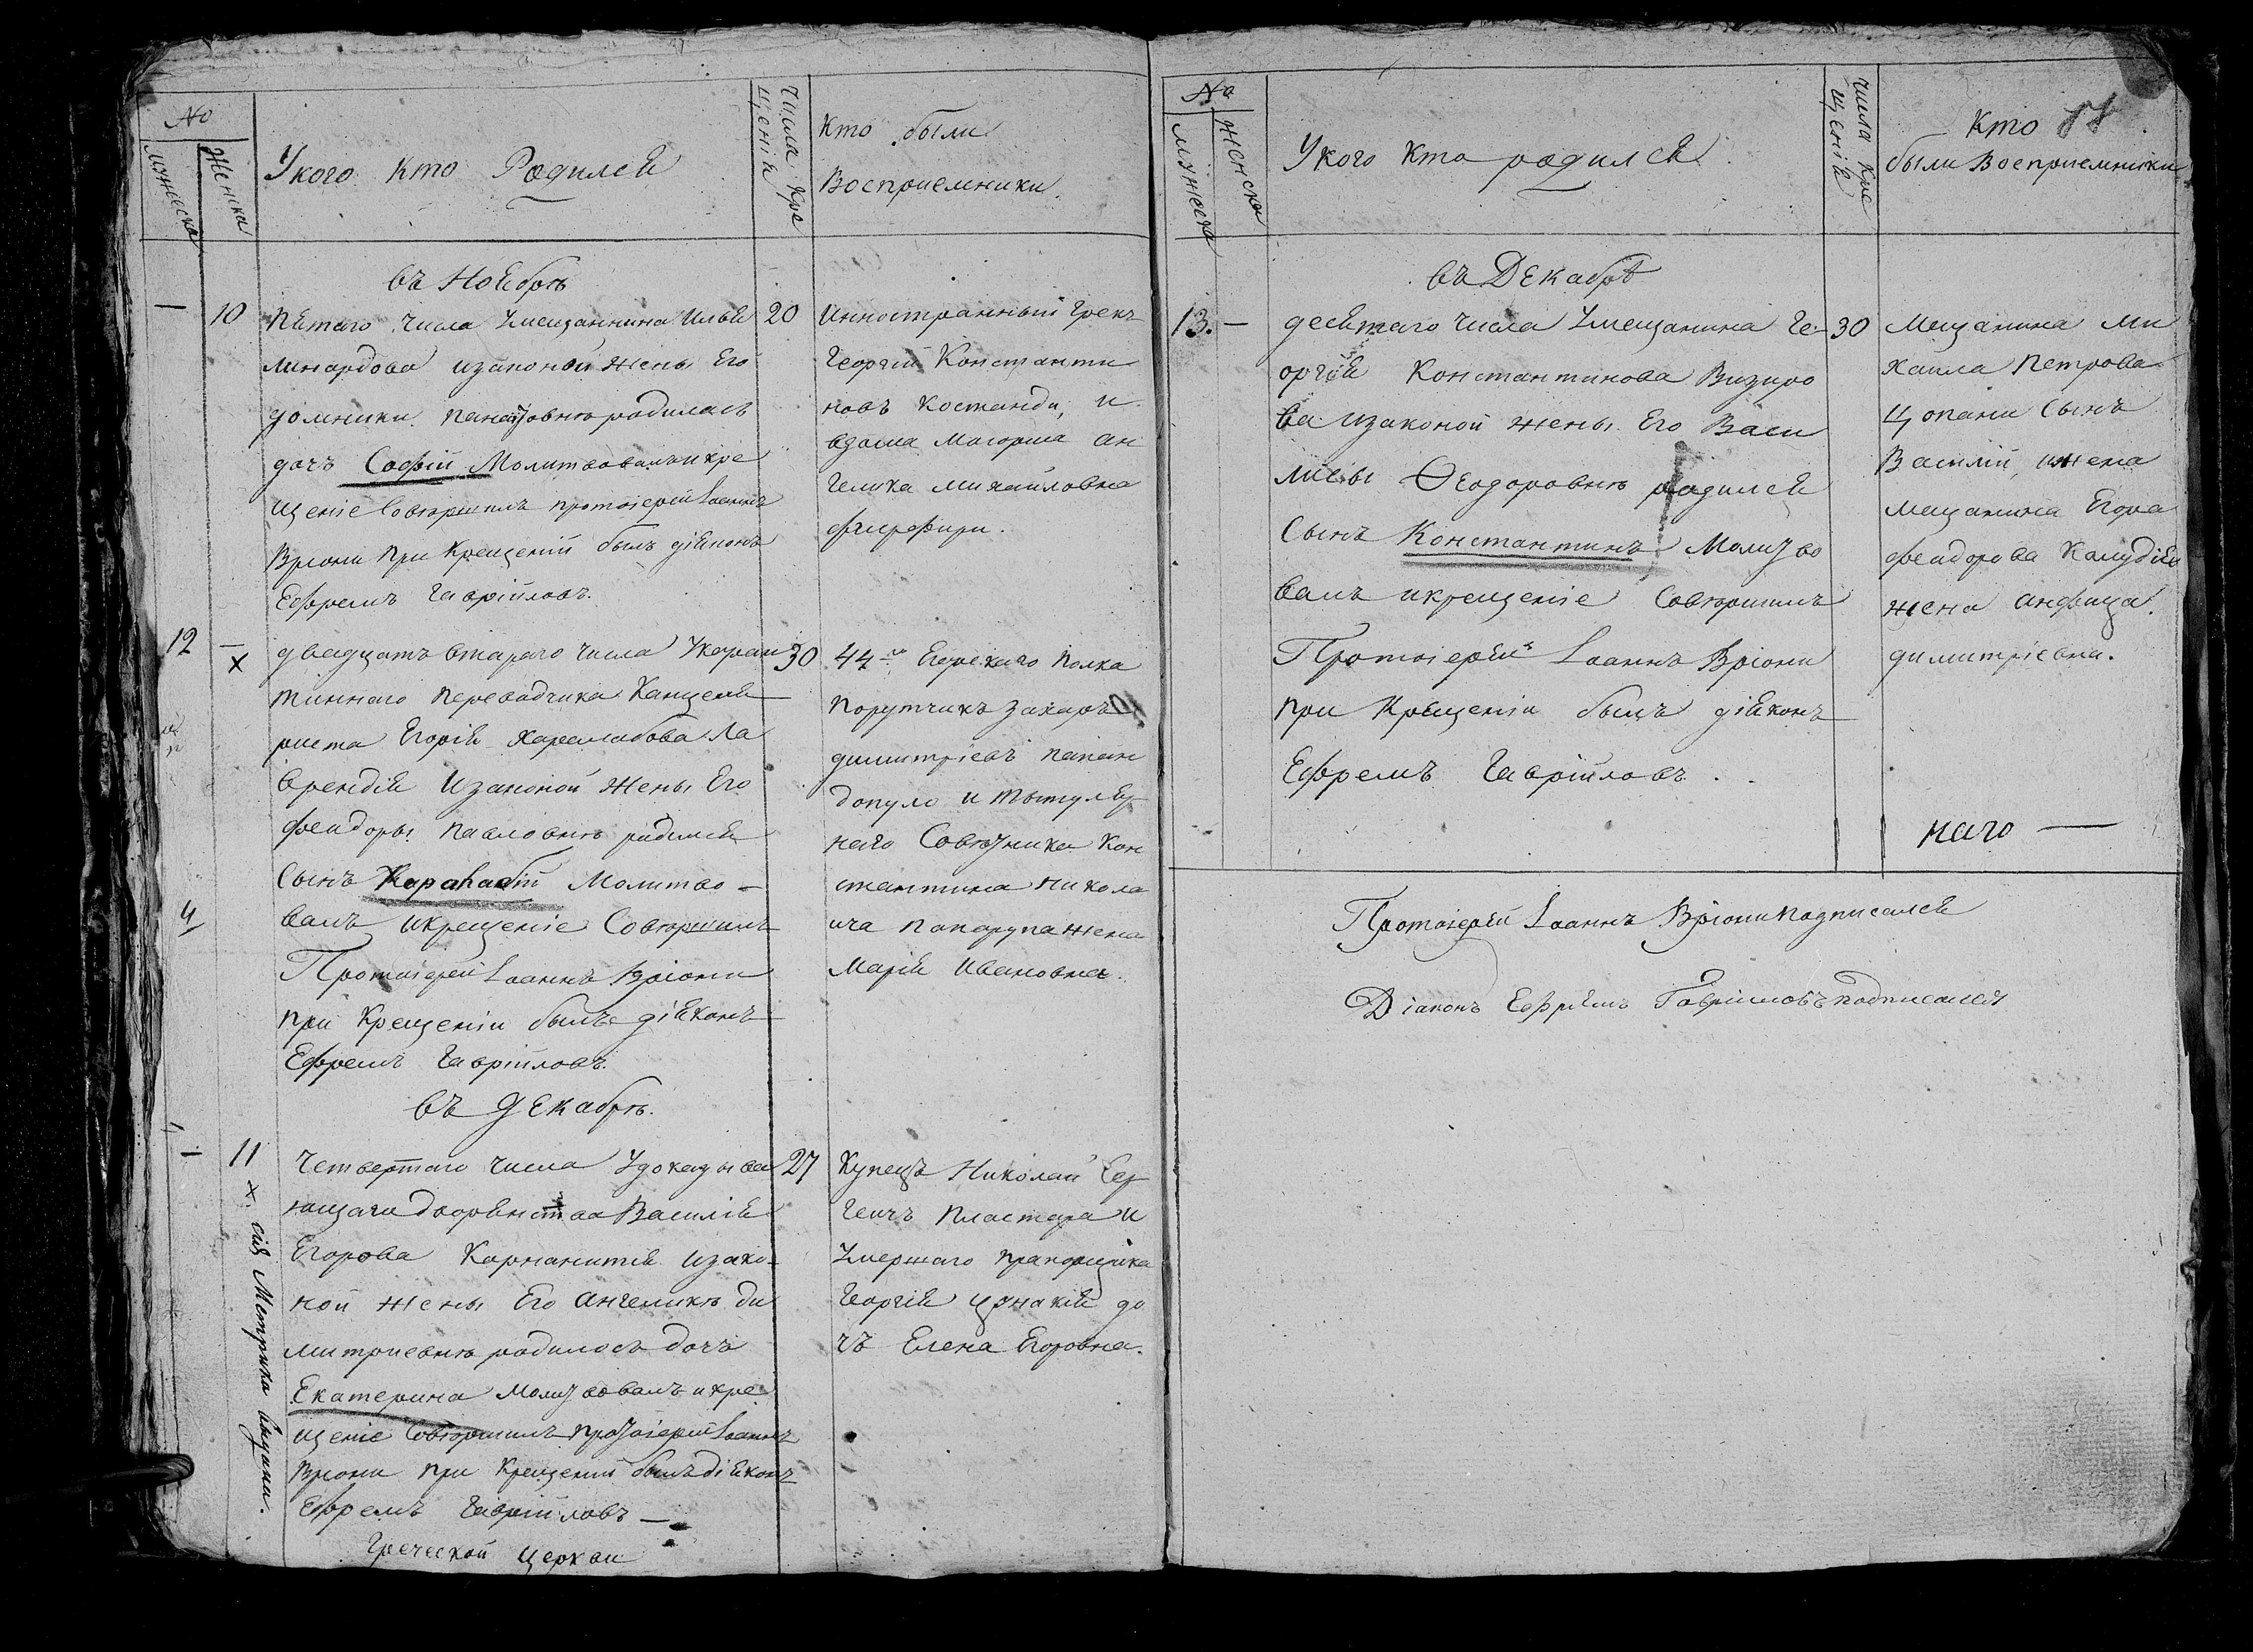 No
мужеска
Женска
Укого кто Родилсѣ
числа кре
щеніѣ
Кто были
Восприемники
въ Ноѣбрѣ
10
пѣтаго числа Умещаннина Ильѣ
20
линардова изаконой жены Его
домники родилась
дочъ Софій Молитвовалъ икре
щеніе Совѣршилъ протоіерей Іоаннъ
Вріони при Крещеній былъ діѣконъ
Ефремъ Гавріиловъ.
Инностранный Грекъ
Георгій Константи
новъ Костанди, и
вдома Маіорша ан
гелика Михайловна
12
х
двадцатъ втараго числа Укаран
30
тиннаго переводчика Канцелѣ
риста Егоріѣ Харалабова Ла
врендіѣ Изаконой Жены Его
феидоры павловнѣ родилсѣ
Сынъ Молитво
валъ икрещеніе Совѣршилъ
Протоіерей Іоаннъ Вріони
при Крещеніи былъ діѣконъ
Ефремъ Гавріиловъ.
44-го Егерскаго полка
порутчикъ Захаръ
димитріевъ папан
допуло и тытулѣр
наго Совѣтника Кон
стантина никола
ича жена
Маріѣ Ивановна.
4
въ декабрѣ.
11
х
Четвертаго числа Удоказыва
27
ющаго дворѣнства Василіѣ
Егорова Изако
ной жены Его Ангеликѣ ди
митриевнѣ родилосъ дочъ
Екатерина Молитвовалъ икре
щеніе Совѣршилъ протоіерей Іоаннъ
Вриони при Крещеній былъ діѣконъ
Ефремъ Гавріиловъ
Греческой церкви
Купецъ Николай Сер
геичъ Пластара и
Умершаго прапорщика
Георгіѣ до
чъ Елена Егоровна.
х. сія Метрика выдана.
No
мужеска
женска
Укого кто родилсѣ
числа кре
щеніѣ
Кто
были Восприемники
въ Декабрѣ
13.
десѣтаго числа Умещанина Ге
30
оргіѣ Константинова Визиро
ва изаконой жены Его Васи
лисы Ѳеодоровнѣ родилсѣ
Сынъ Константинъ Молитво
валъ икрещеніе Совѣршилъ
Протоіерей Іоаннъ Вріони
при Крещеніи былъ діѣконъ
Ефремъ Гавріиловъ.
Мещанина Ми
хаила Петрова
Цопани Сынъ
Василій, ижена
мещанина Егора
феидорова
жена анфица
димитріевна.
наго
Протоіерей Іоаннъ Вріони подписалсѣ
Діаконъ Ефремъ Гавріиловъ подписался